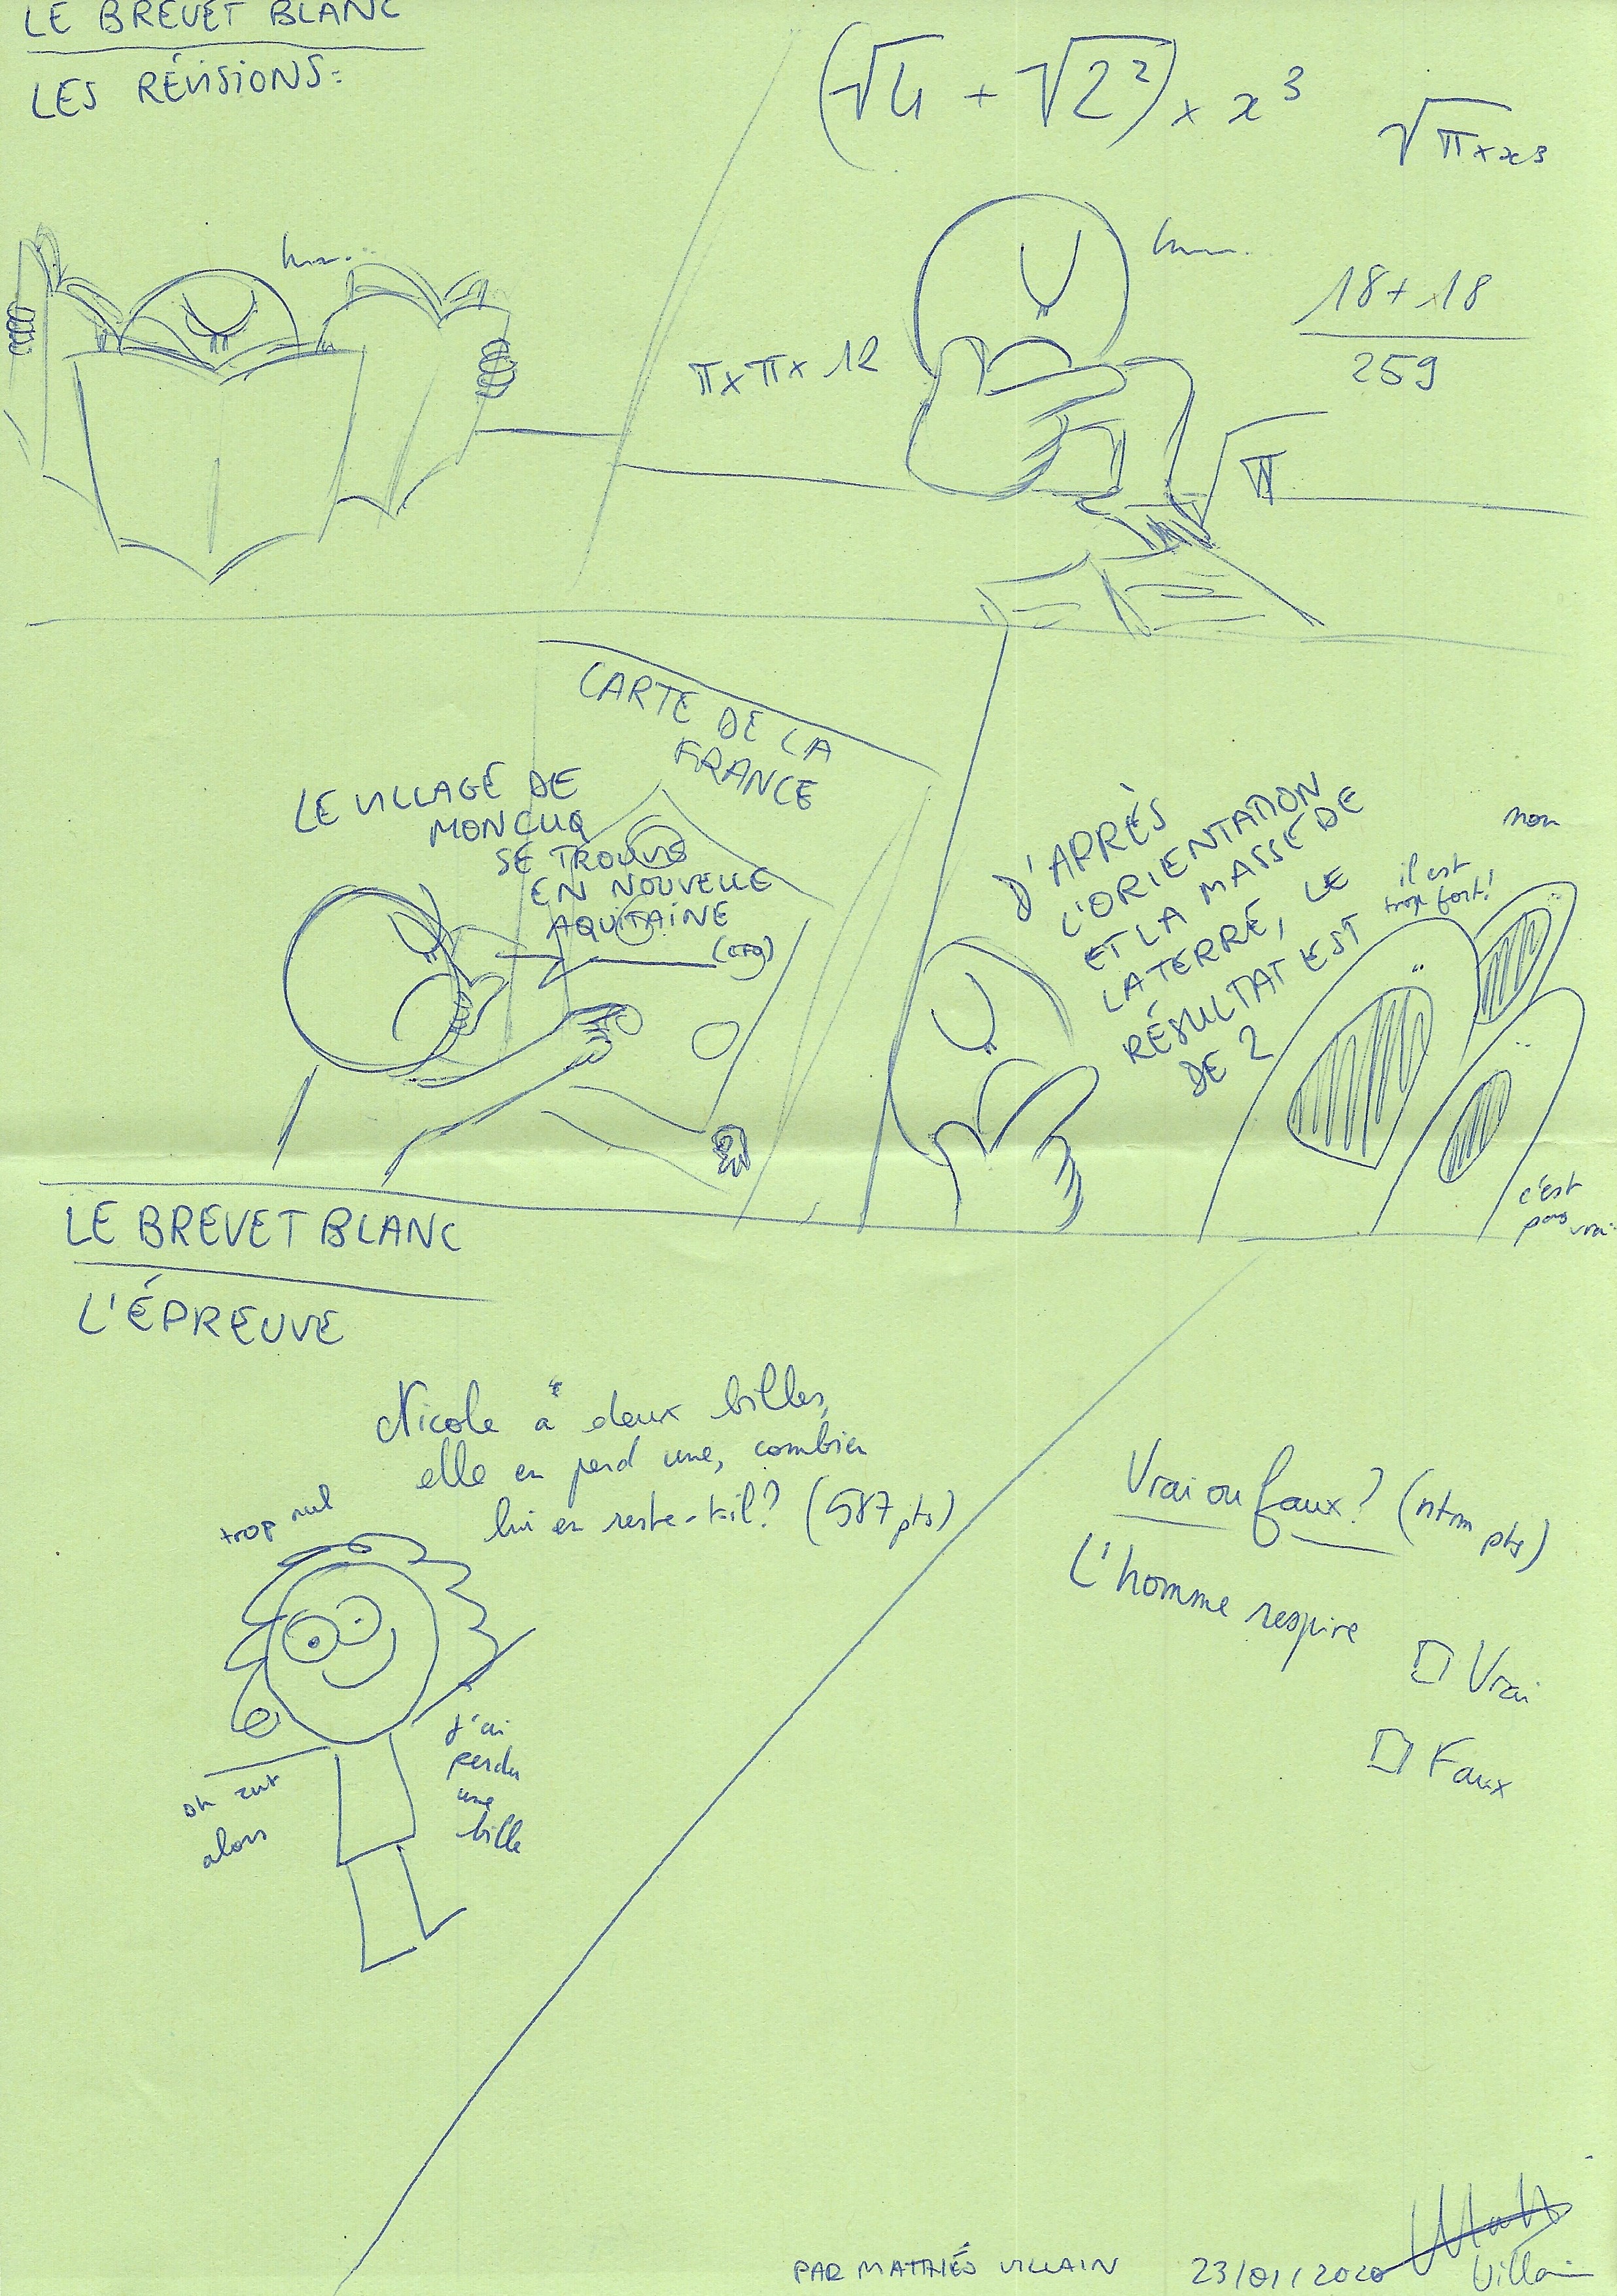 LE BREVET BLANC
LES RÉVISIONS:
(√4 + √2²) × x³
√π×x³
hum...
hum...
π×π×12
18+18
259
√π
CARTE DE LA
FRANCE
LE VILLAGE DE
MONCUQ
SE TROUVE
EN NOUVELLE
AQUITAINE
D'APRÈS
L'ORIENTATION
ET LA MASSE DE
LA TERRE, LE
RÉSULTAT EST
DE 2
non
il est
trop fort!
c'est
pas vrai
LE BREVET BLANC
L'ÉPREUVE
Nicole a deux billes,
elle en perd une, combien
lui en reste-t-il? (587 pts)
trop nul
oh zut
alors
j'ai
perdu
une
bille
Vrai ou faux? (ntm pts)
L'homme respire
Vrai
Faux
PAR MATHÉO VILLAIN
23/01/2020
Villain